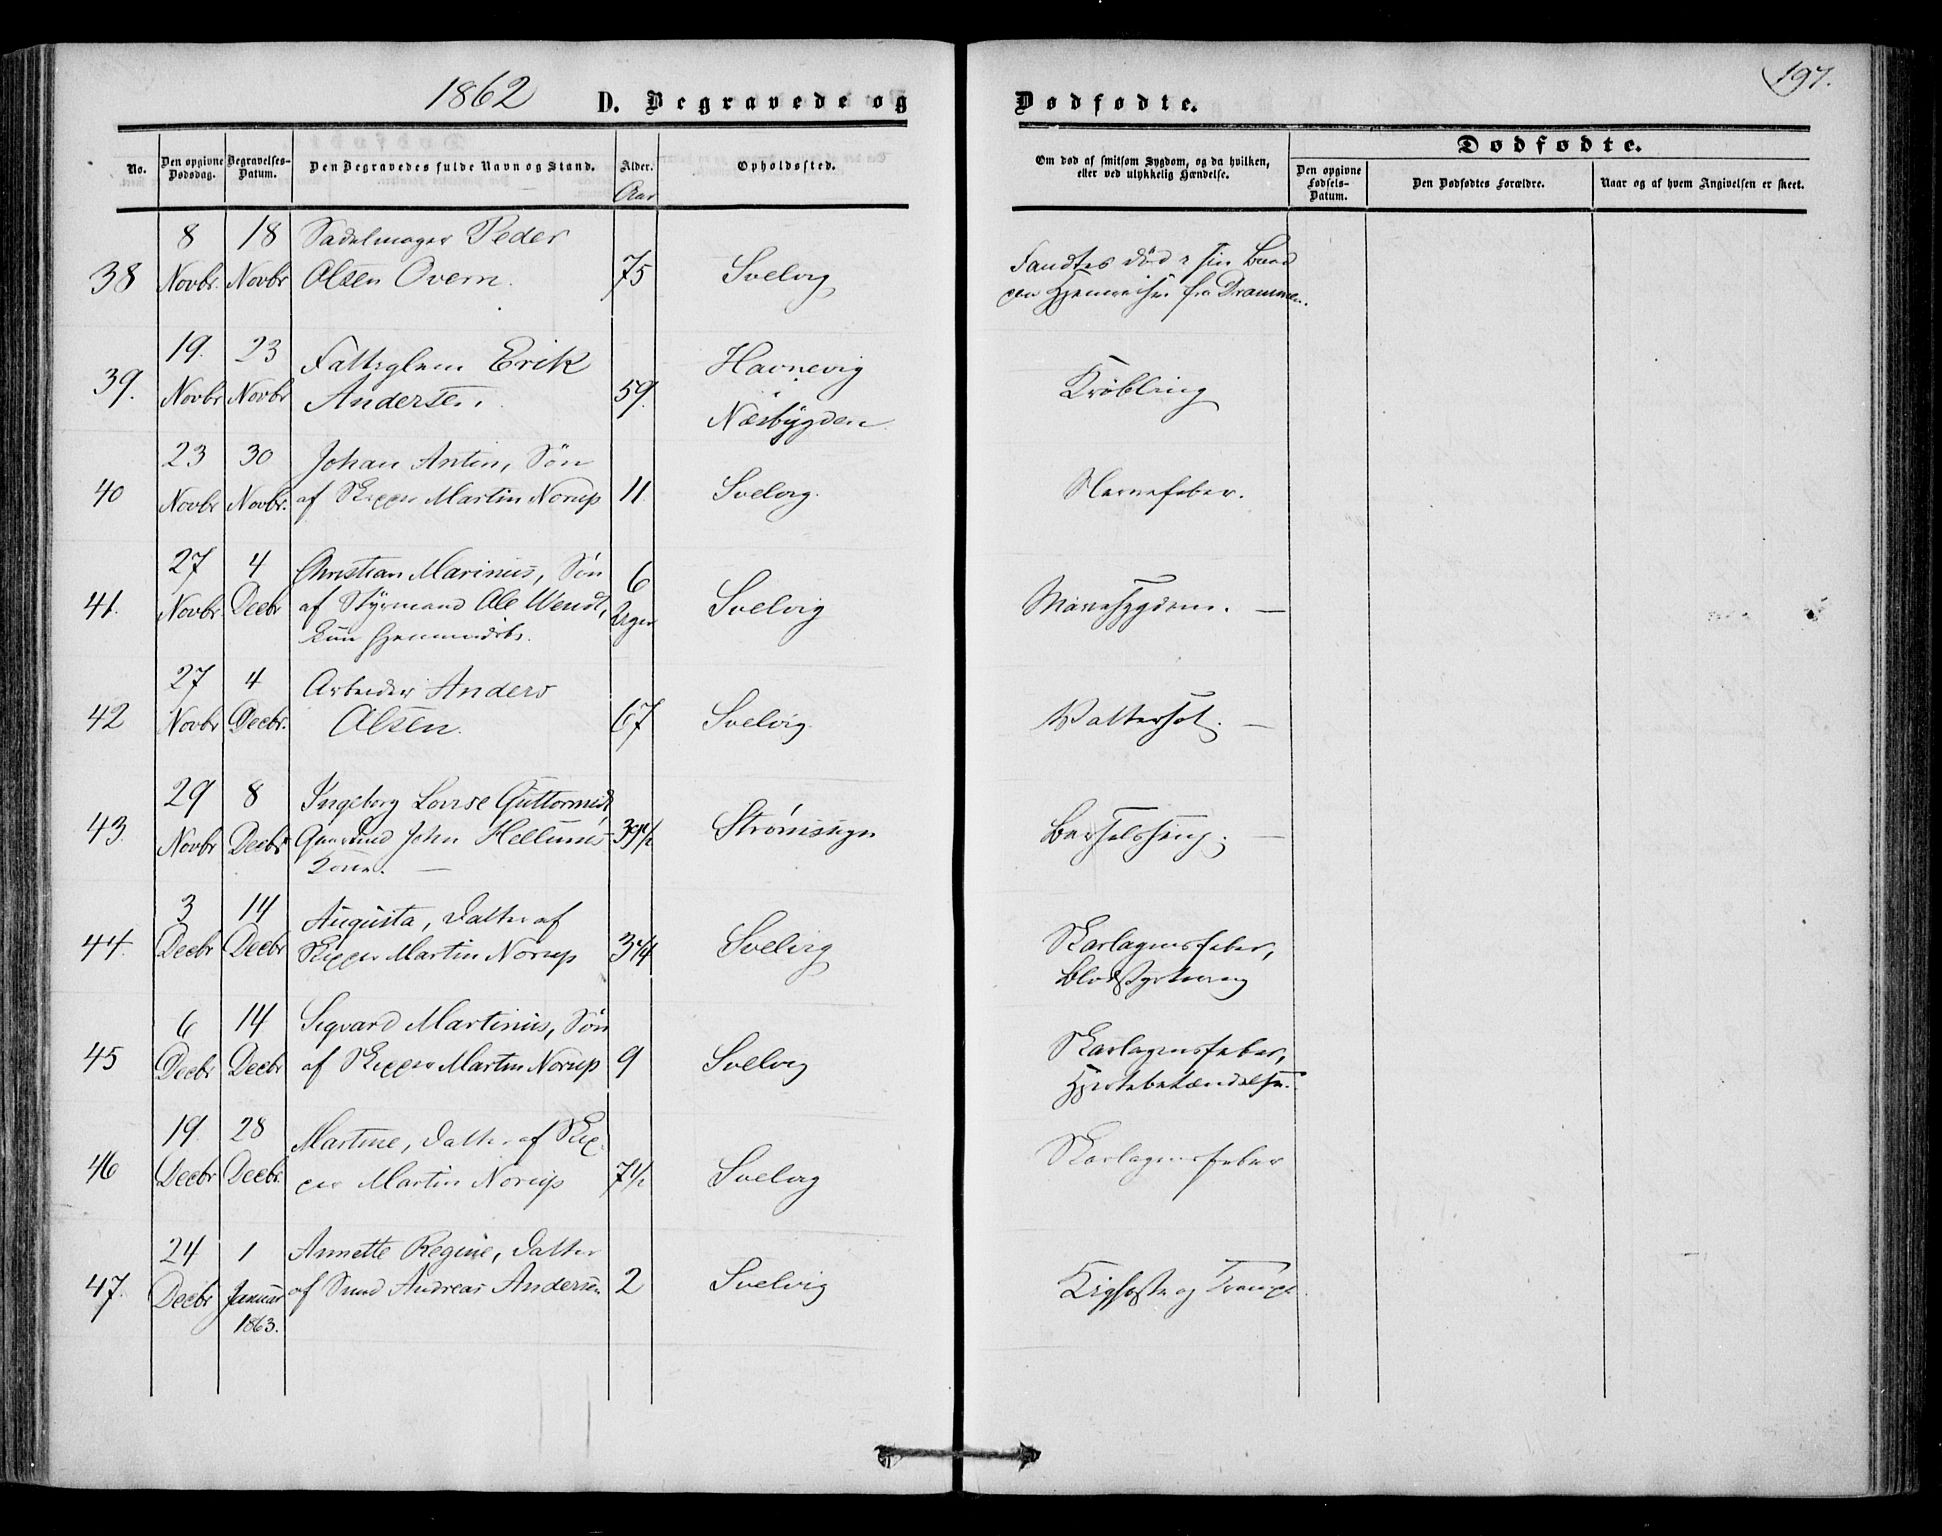 1862 D. Begravede og Dødfødte. 197.
No. Den opgivne Dødsdag. Begravelses-Datum. Den Begravedes fulde Navn og Stand. Alder. Opholdssted. Om død af smitsom Sygdom, og da hvilken, eller ved ulykkelig Hændelse. Dødfødte.
Den opgivne Fødsels-Datum. Den Dødfødtes Forældre. Naar og af hvem Angivelsen er skeet.
Aar
8 18 Sadelmager Peder
38 Novbr. Novbr Olsen Overn. 75 Svelvig Fandtes død i sin Baad
paa Hjemreisen fra Drammen.
19. 23 Fattiglem Erik Havnevig
39. Novbr Novbr Andersen. 59. i Krøbling
Næsbygden
23 30 Johan Anton, Søn
40 Novbr Novbr. af Skipper Martin Norup 11 Svelvig. Nervefeber.
27 4 Christian Marinus, Søn 6
41. Novbr Decbr af Styrmand Ole Wendt, Uger Svelvig Mavesygdom. —
kun hjemmedøbt.
27 4 Arbeider Anders
42 Novbr Decbr. Olsen. 67 Svelvig. Vattersot. —
29 8 Ingeborg Lovise Guttormsdt,
43. Novbr Decbr Gaardmd John Hellums 39½ Strømsogn Barselseng. —
Kone. —
3 14 Augusta, Datter af
44. Decbr Decbr Skipper Martin Norup 3¼ Svelvig Skarlagensfeber,
Blodstyrtning
6 14 Sigvard Martinus, Søn
45 Decbr Decbr af Skipper Martin Norup 9 Svelvig Skarlagensfeber,
Hjertebetændelse.
19. 28 Martine, Datter af Skip-
46 Decbr Decbr. per Martin Norup 7½ Svelvig Skarlagensfeber
24 1 Annette Regine, Datter
47. Decbr Januar af Smed Andreas Andersen 2 Svelvig Kighoste og Krampe.
1863.